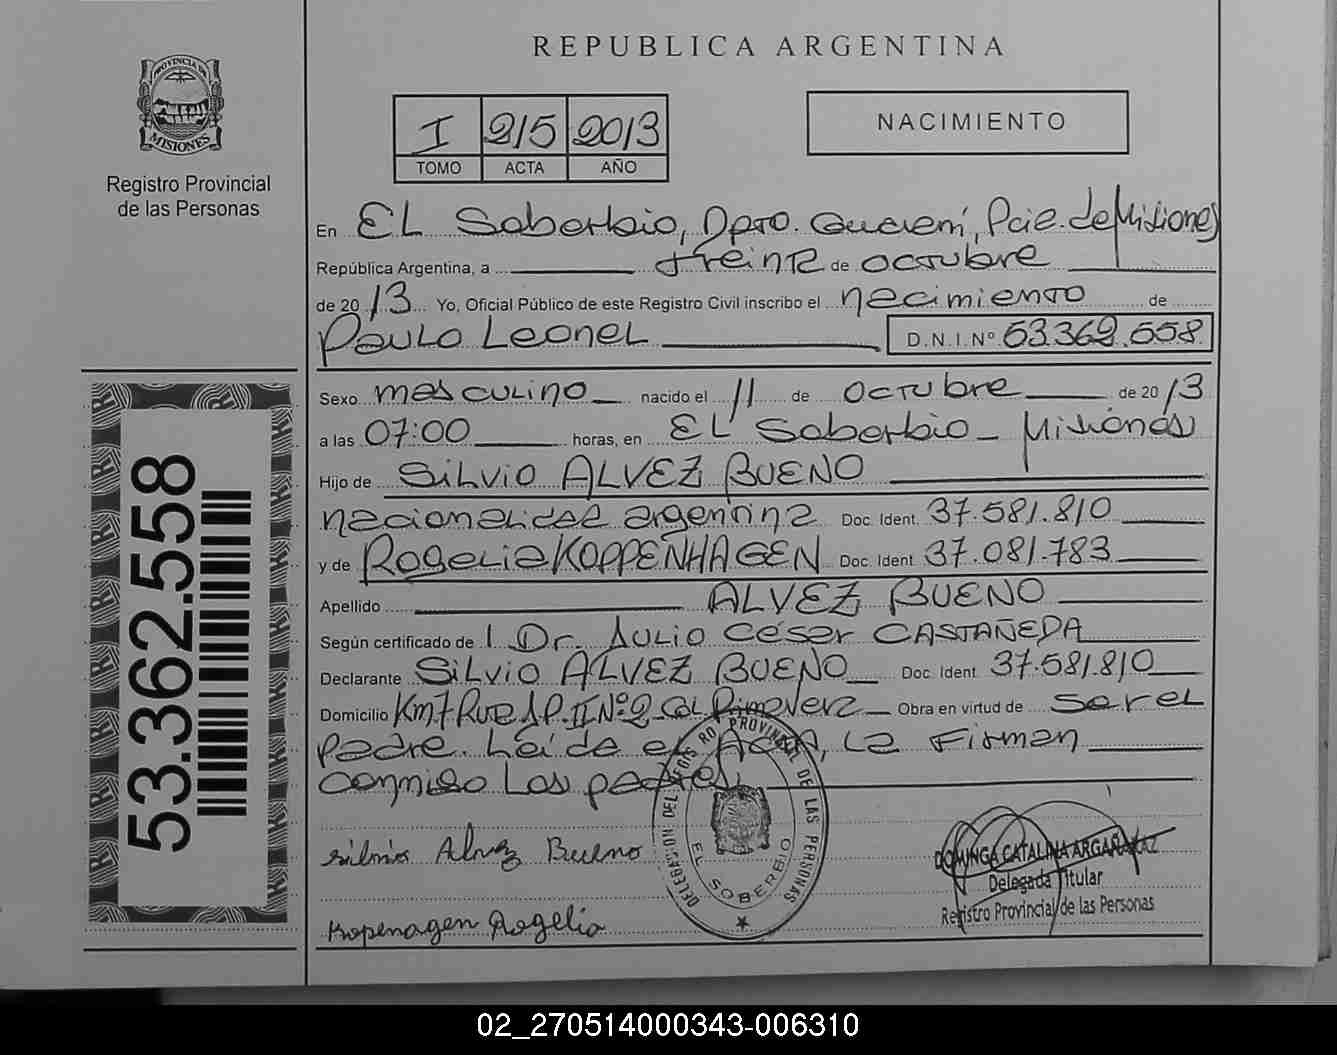 REPUBLICA ARGENTINA
PROVINCIA DE
MISIONES
Registro Provincial
de las Personas
I 215 2013
TOMO ACTA AÑO
NACIMIENTO
En EL Soberbio, Dpto. Guarani, Pcia. de Misiones
República Argentina, a treinta de octubre
de 2013 Yo, Oficial Público de este Registro Civil inscribo el nacimiento de
Paulo Leonel D.N.I.Nº 53.362.558
Sexo masculino nacido el 11 de octubre de 2013
a las 07:00 horas, en EL Soberbio - Misiones
Hijo de SiLvio ALVEZ BUENO
nacionalidad argentina Doc. Ident. 37.581.810
y de Rogelia KOPPENHAGEN Doc. Ident 37.081.783
Apellido ALVEZ BUENO
Según certificado de Dr. Julio César CASTAÑEDA
Declarante SiLvio ALVEZ BUENO Doc. Ident. 37.581.810
Domicilio Km7 Ruta J.P. II Nº2 Col Primavera Obra en virtud de ser el
padre. Leída el Acta, la Firman
conmigo los padres.
silvio Alvez Bueno
Kopenagen Rogelia
DELEGACION DEL REGIS RO PROVINCIAL DE LAS PERSONAS
EL SOBERBIO
DOMINGA CATALINA ARGAÑARAZ
Delegada Titular
Registro Provincial de las Personas
53.362.558
02_270514000343-006310